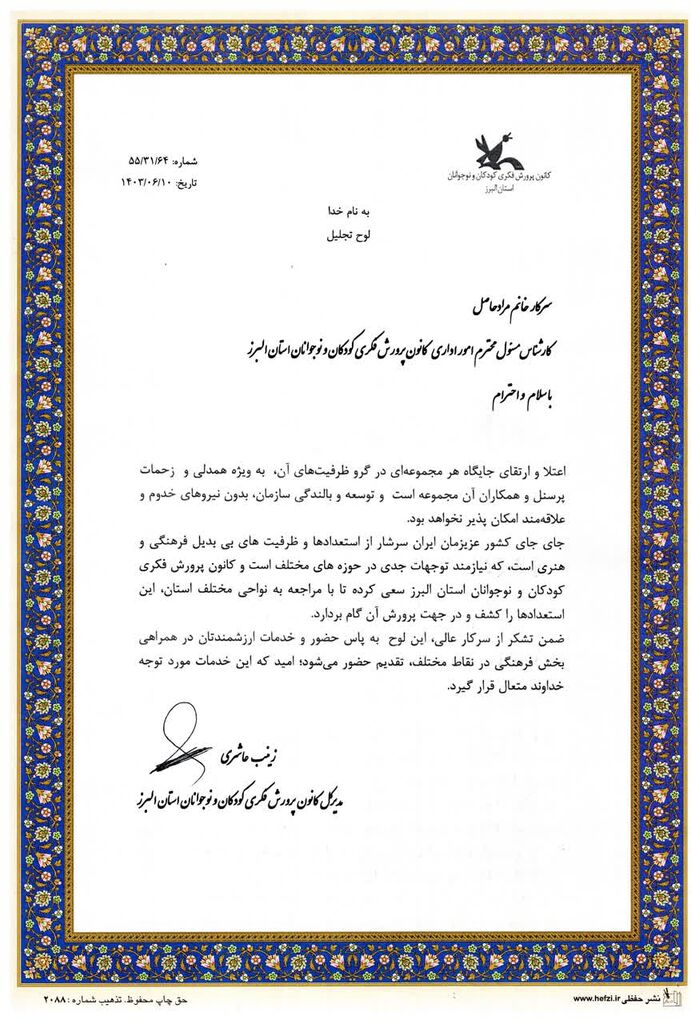 کانون پرورش فکری کودکان و نوجوانان
استان البرز
شماره: ۵۵/۳۱/۶۴
تاریخ: ۱۴۰۳/۰۶/۱۰
به نام خدا
لوح تجلیل
سرکار خانم مرادحاصل
کارشناس مسئول محترم امور اداری کانون پرورش فکری کودکان و نوجوانان استان البرز
با سلام و احترام
اعتلا و ارتقای جایگاه هر مجموعه‌ای در گرو ظرفیت‌های آن، به ویژه همدلی و زحمات
پرسنل و همکاران آن مجموعه است و توسعه و بالندگی سازمان، بدون نیروهای خدوم و
علاقه‌مند امکان پذیر نخواهد بود.
جای جای کشور عزیزمان ایران سرشار از استعدادها و ظرفیت های بی بدیل فرهنگی و
هنری است، که نیازمند توجهات جدی در حوزه های مختلف است و کانون پرورش فکری
کودکان و نوجوانان استان البرز سعی کرده تا با مراجعه به نواحی مختلف استان، این
استعدادها را کشف و در جهت پرورش آن گام بردارد.
ضمن تشکر از سرکار عالی، این لوح به پاس حضور و خدمات ارزشمندتان در همراهی
بخش فرهنگی در نقاط مختلف، تقدیم حضور می‌شود؛ امید که این خدمات مورد توجه
خداوند متعال قرار گیرد.
زینب عاشری
مدیرکل کانون پرورش فکری کودکان و نوجوانان استان البرز
نشر حفظی www.hefzi.ir
حق چاپ محفوظ. تذهیب شماره: ۲۰۸۸